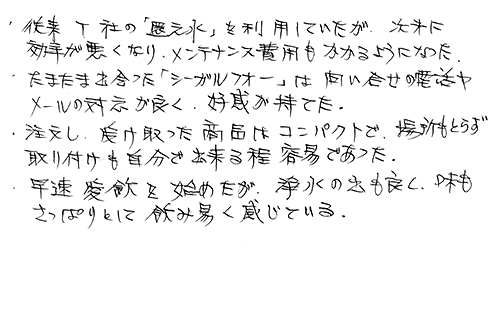 ・従来 T社の「還元水」を利用していたが、次第に
効率が悪くなり、メンテナンス費用もかかるようになった。
・たまたま出合った「シーガルフォー」は 問い合せの電話や
メールの対応が良く、好感が持てた。
・注文し、受け取った商品はコンパクトで、場所もとらず
取り付けも自分で出来る程 容易であった。
・早速 愛飲を始めたが、浄水の出も良く、味も
さっぱりとして飲み易く感じている。